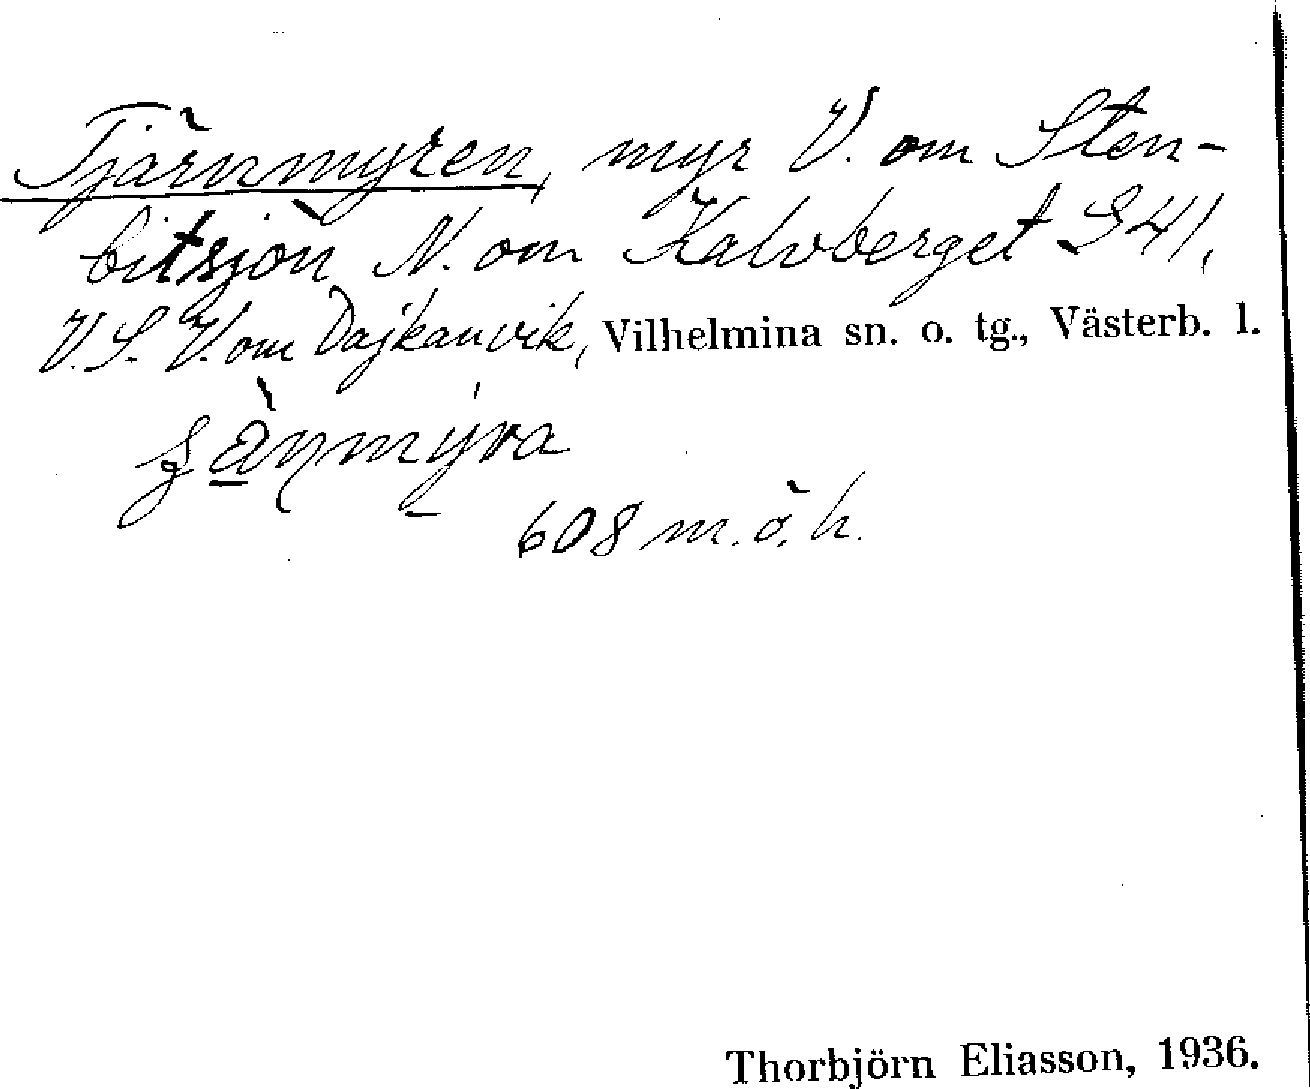 Tjärnmyren, myr V. om Sten-
bitsjön N. om Kalvberget S41,
V.S.V. om Dajkanvik, Vilhelmina sn. o. tg., Västerb. l.
608 m.ö.h.
Thorbjörn Eliasson, 1936.